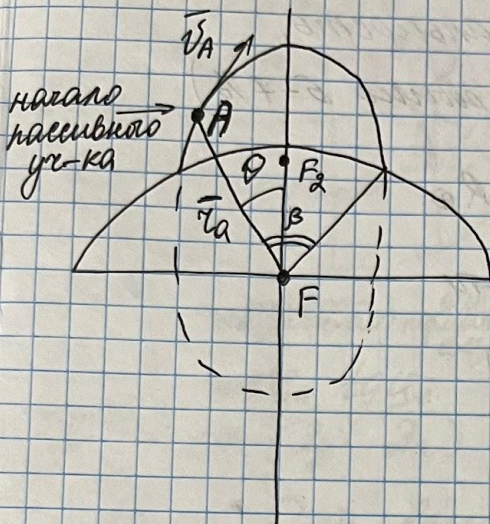 v̅_A
начало
пассивного
уч-ка
A
θ
F₂
r̅_a
β
F